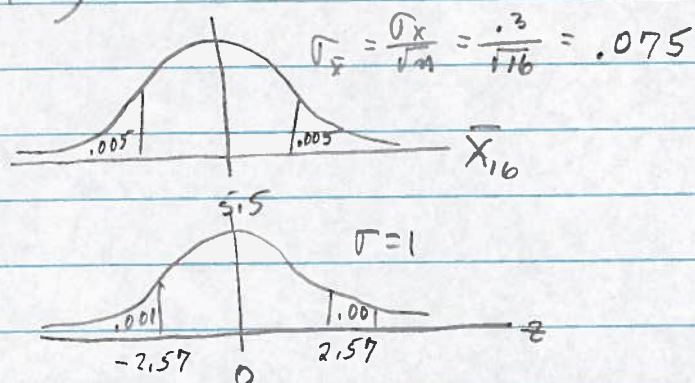 σx̄ = σx/√n = .3/√16 = .075
.005 .005 X̄16
5.5
σ=1
.001 .001 z
-2.57 0 2.57